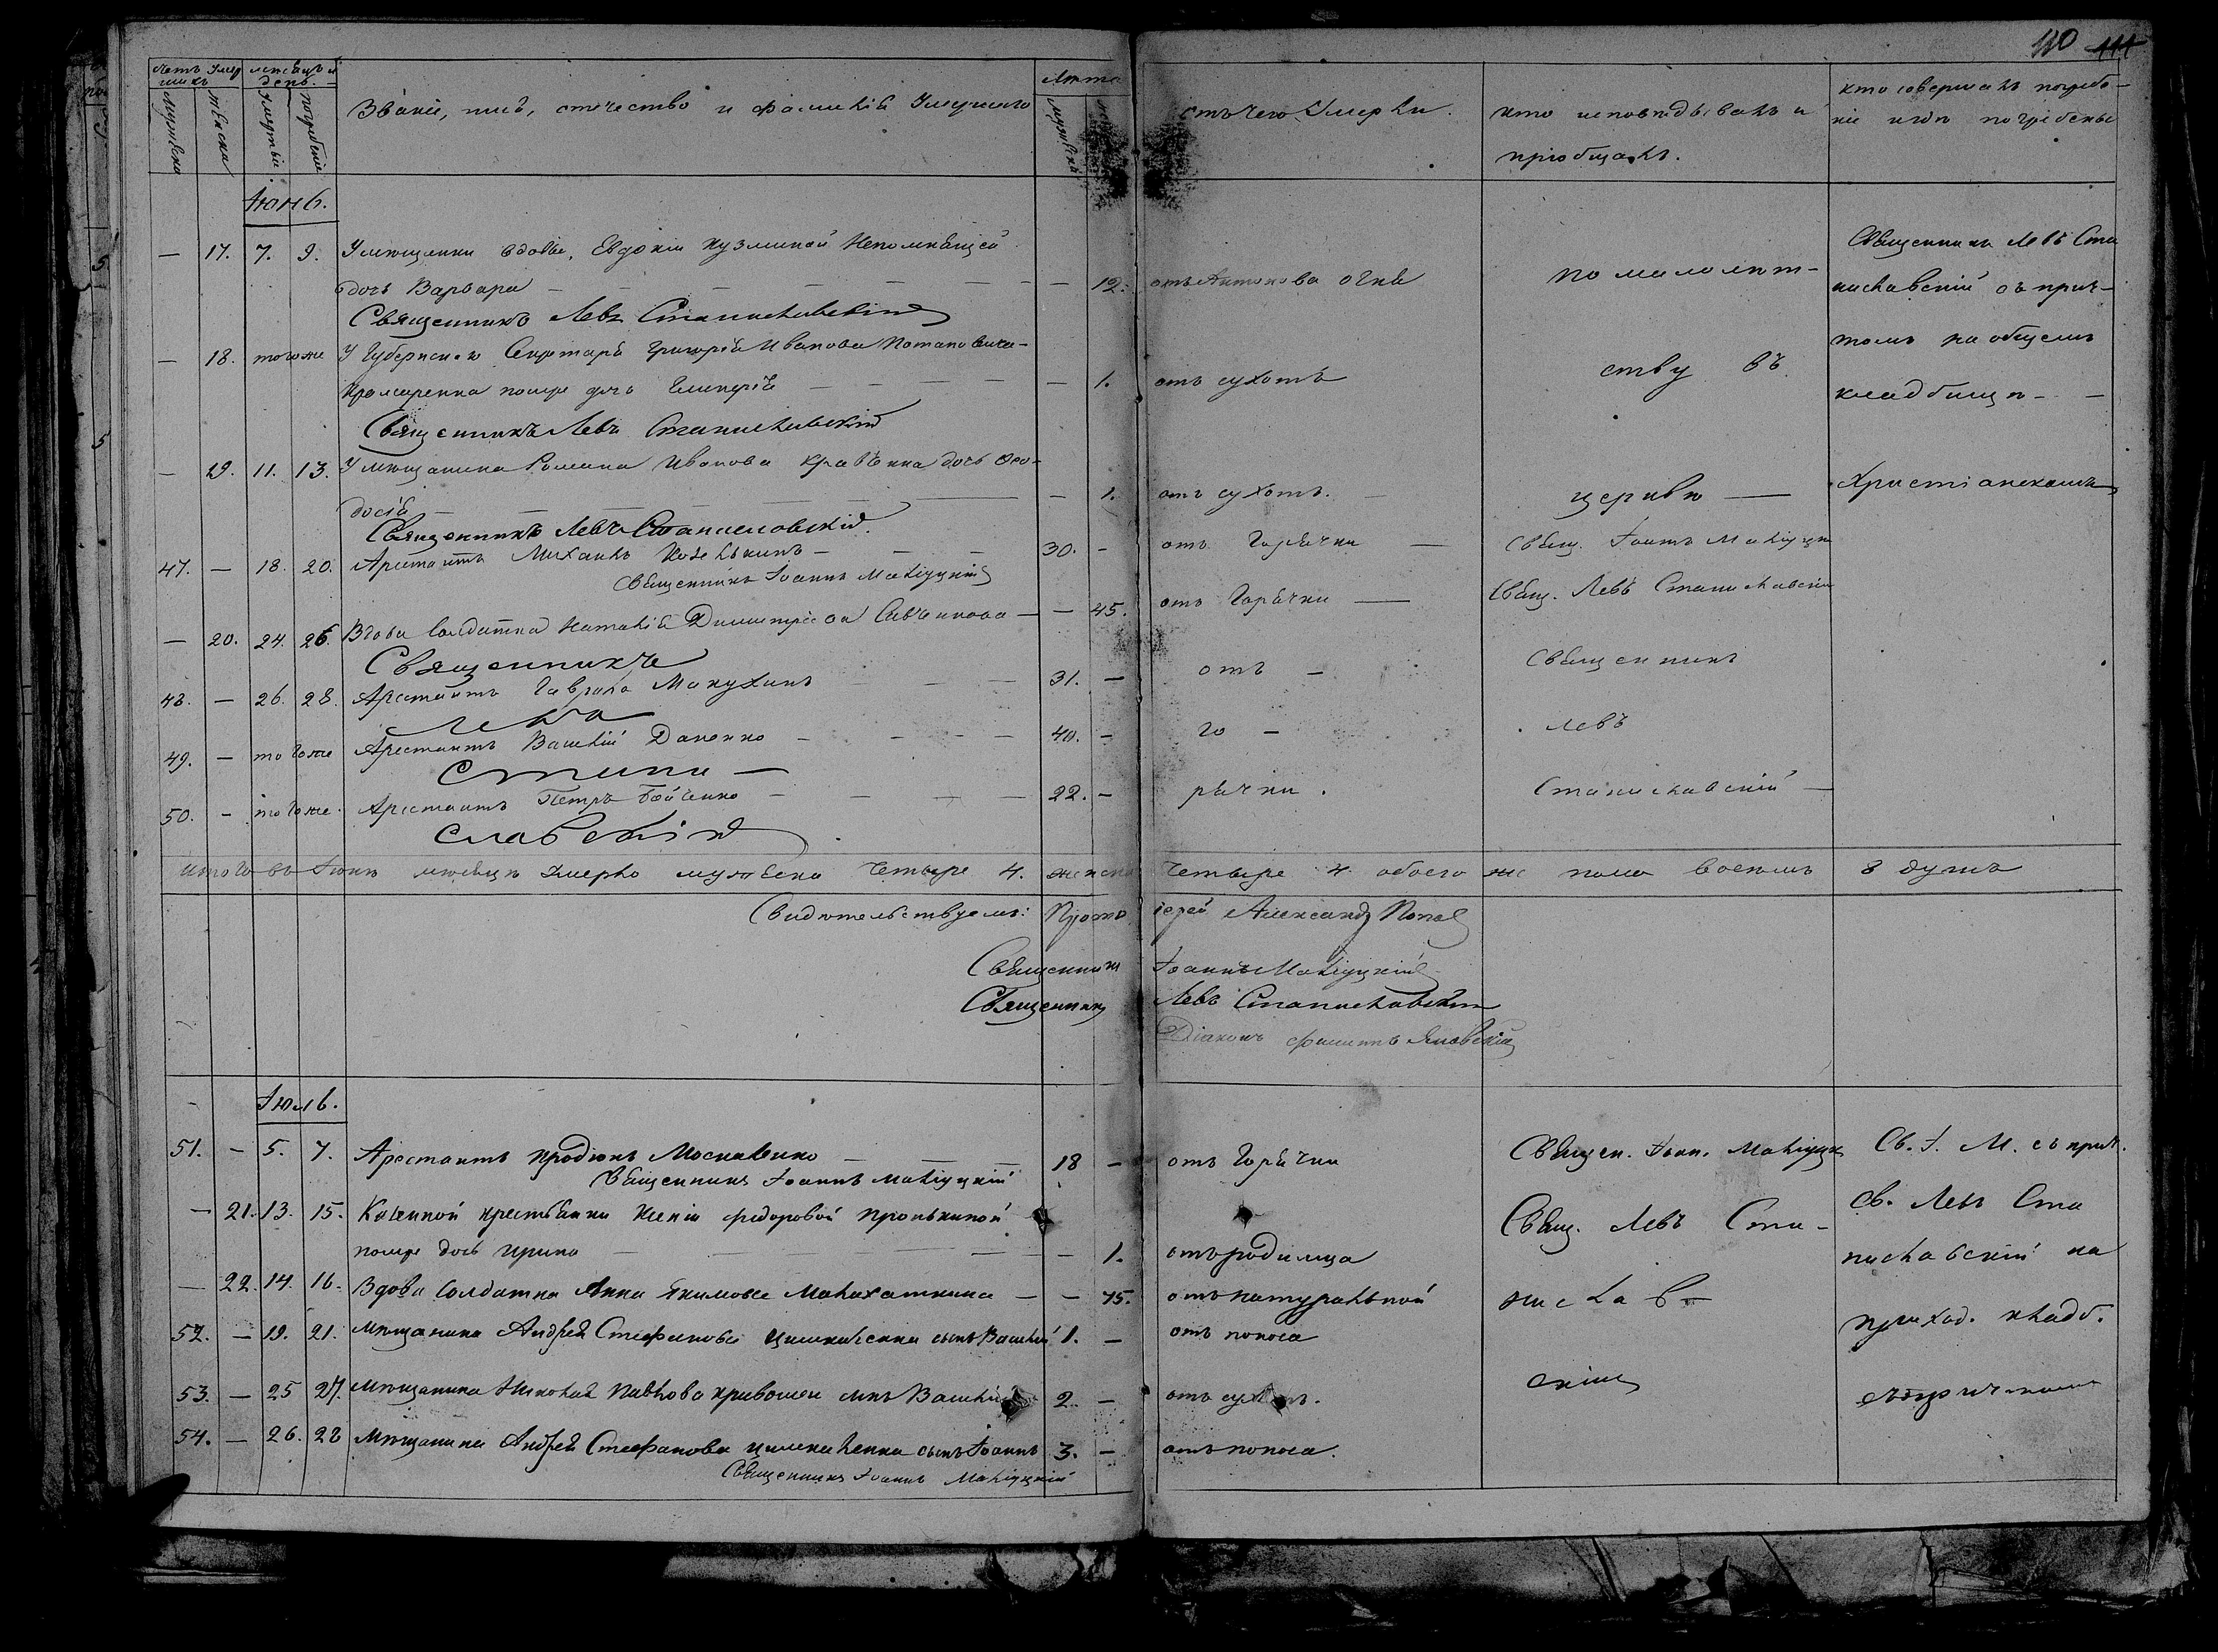 110 111
счетъ умершихъ
мѣсяцъ и день
Мужеска
Женска
Смерти
Погребенія
Званіе, имя, отчество и фамилія умершаго
Лѣта
Мужеска
отъ чего умерли.
кто исповѣдывалъ и
пріобщалъ.
кто совершалъ погребе-
ніе и гдѣ погребены
Іюнь.
— 17. 7. 9. У мѣщанки вдовы, Евдокіи Кузминой Непомнящей
дочь Варвара — — 12. отъ Антонова огня
по малолѣт-
Священникъ Левъ Стани
славскій съ прич-
Священникъ Левъ Станиславскій
— 18. тогоже У Губернскаго Секретаря Григорія Иванова Потаповича-
Крамаренка помре дочь — — 1. отъ сухотъ
ству въ
томъ на общемъ
кладбищѣ —
Священникъ Левъ Станиславскій
— 19. 11. 13. У мѣщанина Романа Иванова Кравченка дочь Ѳео-
досія — — 1. отъ сухотъ.
церкви —
Христіанскомъ
Священникъ Левъ Станиславскій.
47. — 18. 20. Арестантъ Михаилъ — 30. — отъ Горячки — Свящ. Іоаннъ
Священникъ Іоаннъ
— 20. 24. 26. Вдова Солдатка Наталія Димитріева Савченкова — — 45. отъ Горячки — Свящ. Левъ Станиславскій
Священникъ
48. — 26. 28. Арестантъ Гаврила Макухинъ — 31. — отъ — Священникъ
Левъ
49. — тогоже Арестантъ Василій Даненко — 40. — го — Левъ
Стани —
50. — тогоже. Арестантъ Петръ Бойченко — 22. — рячки. Станиславскій —
славскій
Итого въ Іюнѣ мѣсяцѣ умерло мужеска четыре 4. женска четыре 4. обоего же пола восемь 8 душъ
Свидѣтельствуемъ: Протоіерей Александръ Попов
Священникъ Іоаннъ
Священникъ Левъ Станиславскій
Діаконъ Филиппъ Яновскій
Іюль.
51. — 5. 7. Арестантъ Москаленко — 18 — отъ Горячки Священ. Іоан. Св. І. М. съ прич.
Священникъ Іоаннъ
— 21. 13. 15. Казенной крестьянки Ксеніи Федоровой Пронькиной
помре дочь Ирина — — 1. отъ родимца
Свящ. Левъ Ста-
св. Левъ Ста
ниславскій на
— 22. 14. 16. Вдова Солдатка Анна Якимова Малахаткина — — 75. отъ натуральной
нислав-
52. — 19. 21. Мѣщанина Андрея Стефанова сынъ Василій 1. — отъ поноса
приход. кладб.
53. — 25 27. Мѣщанина Николая Павлова Кривошеи сынъ Василій 2. — отъ сухотъ.
скій
съ причтомъ
54. — 26. 28 Мѣщанина Андрея Стефанова сынъ Іоаннъ 3. — отъ поноса.
Священникъ Іоаннъ